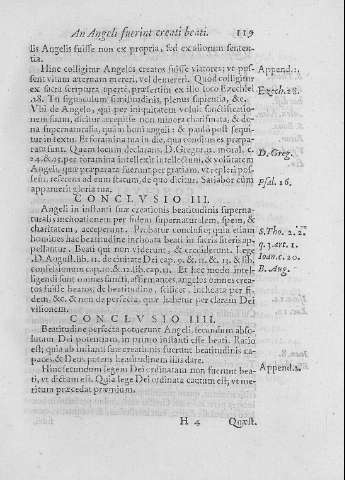 An Angeli fuerint creati beati. 119
lis Angelis fuisse non ex propria, sed ex aliorum senten-
tia.
Hinc colligitur Angelos creatos fuisse viatores; vt pos- Append.1.
sent vitam æternam mereri, vel demereri. Quod colligitur
ex sacra scriptura aperte, præsertim ex illo loco Ezechiel Ezech.28.
.28. Tu signaculum similitudinis, plenus sapientia, &c.
Vbi de Angelo, qui per iniquitatem voluit
suam, dicitur accepisse non minora charismata, & do-
na supernaturalia, quàm boni angeli: & paulò post sequi-
tur in textu. Et foramina tua in die, qua conditus es præpa-
rata sunt. Quem locum declarans. D. Gregor. moral. c. D. Greg.
24. & 25. per foramina intellexit intellectum, & volũtatem
Angeli, quæ præparata fuerunt per gratiam, vt repleri pos-
sent, ad eum statum, de quo dicitur, Satiabor cùm Psal. 16.
apparuerit gloria tua.
CONCLVSIO III.
Angeli in instanti suæ creationis beatitudinis superna-
turalis inchoationem per fidem supernaturalem, spem, &
charitatem, acceperunt. Probatur conclusio; quia etiam S. Tho. 2. 2.
homines hac beatitudine inchoata beati in sacris literis ap- q. 5 art. 1.
pellantur. Beati qui non viderunt, & crediderunt. Lege Ioan. c. 20.
D. August. lib. 11. de ciuitate Dei cap. 9. & 11. & 13. & lib. B. Aug.
confessionum cap. & 12. lib. cap. 11. Et hoc modo intel-
ligendi sunt omnes sancti, affirmantes angelos omnes crea-
tos fuisse beatos; de beatitudine, scilicet, inchoata per fi-
dem, &c. & non de perfecta, quæ habetur per claram Dei
visionem.
CONCLVSIO IIII.
Beatitudine perfecta potuerunt Angeli, secundum abso-
lutam Dei potentiam, in primo instanti esse beati. Ratio
est; quia ab instanti suæ creationis fuerunt beatitudinis ca-
paces, & Deus poterat beatitudinem illis dare.
Hinc secundum legem Dei ordinatam non fuerunt bea- Append.2.
ti, vt dictum est. Quia lege Dei ordinata cautum est; vt me-
ritum præcedat præmium.
H 4 Quæst.